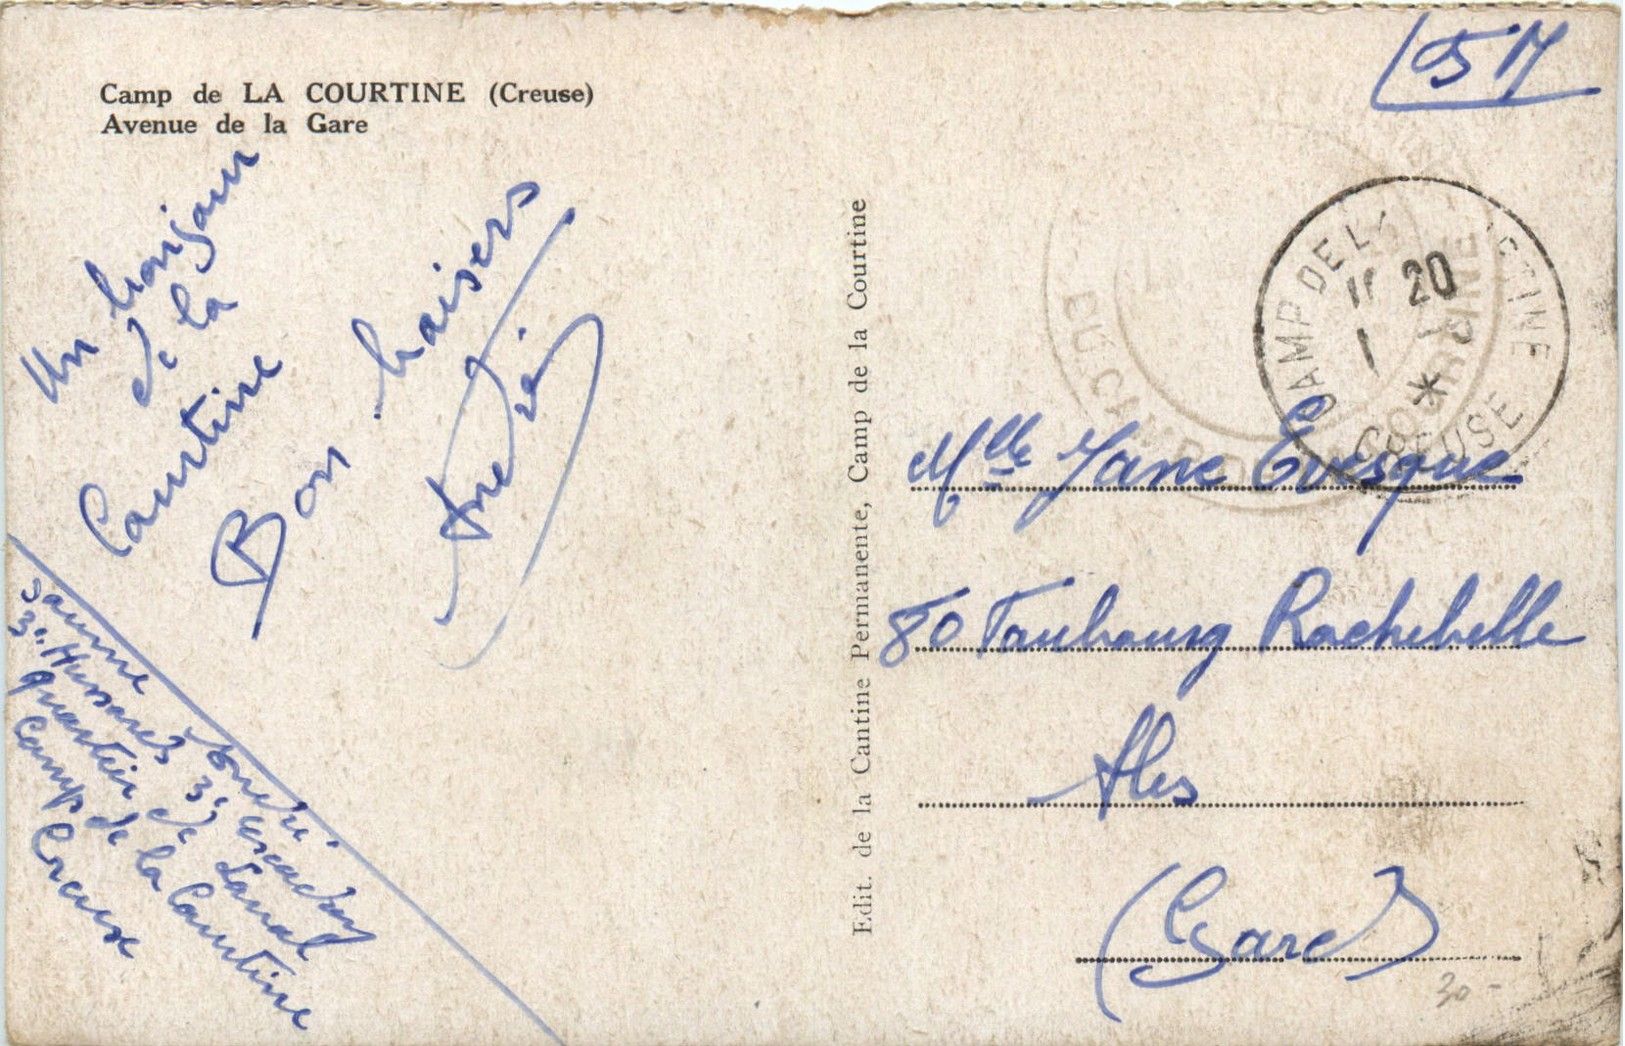 Camp de LA COURTINE (Creuse)
Avenue de la Gare
Un bonjour
de la
Courtine
Bon baisers
André
André
3e Hussards 3e
quartier de Laval
Camp de la Courtine
Creuse
Edit. de la Cantine Permanente, Camp de la Courtine
FM
CAMP DE L
TINE
20
*
CREUSE
DU CAMP
COURTINE
Mlle Jane Evesque
80 Faubourg Rochebelle
Ales
(Gard)
30 -